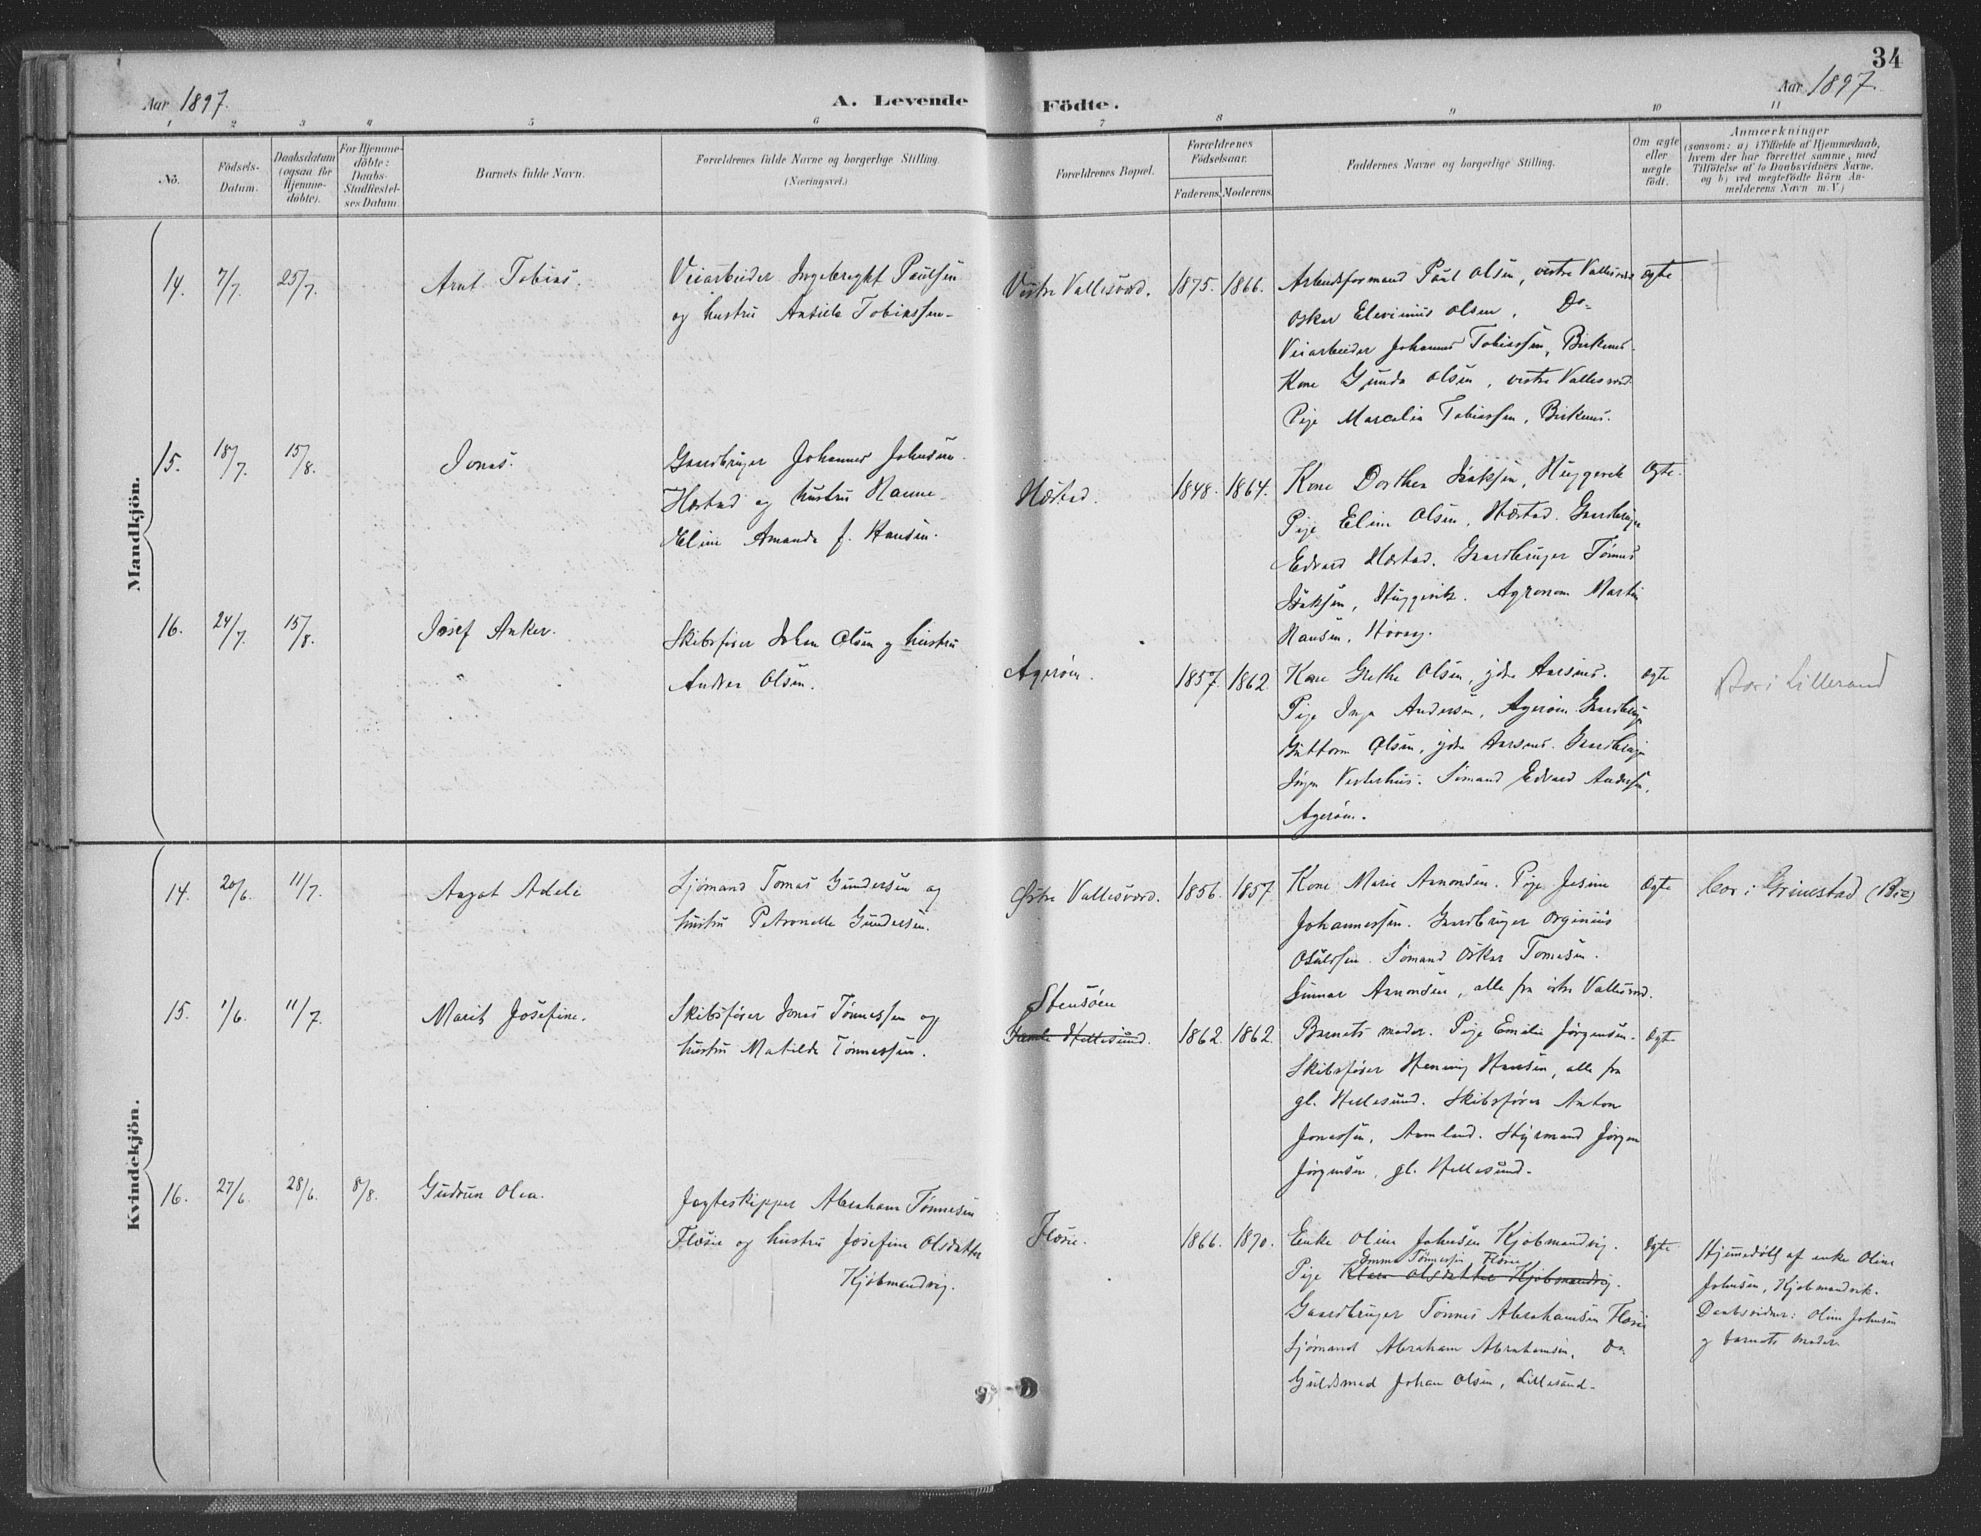 34
Aar 1897.
A. Levende Födte.
Aar 1897.
1 2 3 4 5 6 7 8 9 10 11
No.
Födsels-Datum.
Daabsdatum (ogsaa for Hjemme-döbte).
For Hjemme-döbte: Daabs-Stadfæstel-ses Datum
Barnets fulde Navn.
Forældrenes fulde Navne og borgerlige Stilling.
(Næringsvei.)
Forældrenes Bopæl.
Forældrenes Födselsaar.
Faderens. Moderens.
Faddernes Navne og borgerlige Stilling.
Om ægte eller uægte födt.
Anmærkninger
(saasom: a) i Tilfælde af Hjemmedaab,
hvem der har forrettet samme, med
Tilföielse af to Daabsvidners Navne.
og b) ved uægtefödte Börn An-
melderens Navn m. V.)
Mandkjön.
14. 7/7. 25/7. Arnt Tobias.
Veiarbeider Ingebregt Paulsen
og hustru Tobiassen
Vestre Vallesværd. 1875. 1866.
Arbeidsformand Paul Olsen, vestre Vallesværd
Oskar Olsen, Do
Veiarbeider Johannes Tobiassen, Birkenes.
Kone Gunda Olsen, vestre Vallesværd.
Pige Marcelia Tobiassen, Birkenes.
Ægte
15. 18/7. 15/8. Jonas.
Gaardbruger Johannes Johnsen
Hæstad og hustru Hanne
Eline Amanda f. Hansen.
Hæstad. 1848. 1864.
Kone Dorthea Isaksen, Huggevik
Pige Eline Olsen, Hæstad. Gaardbruger
Edvard Hæstad. Gaardbruger Tønnes
Isaksen, Huggevik. Agronom Martin
Hansen, Høvag.
Ægte.
16. 24/7. 15/8. Josef Anker.
Skibsfører Johan Olsen og hustru
Andrea Olsen.
Agerøen. 1857. 1862
Kone Grethe Olsen, ydre Aarsnes.
Pige Inga Andersen, Agerøen. Gaardbruger
Guttorm Olsen, ydre Aarsnes. Gaardbruger
Vesterhus. Sømand Edvard Andersen,
Agerøen.
Ægte
Bor i Lillesand
Kvindekjön.
14. 20/6. 11/7. Aagot Adele
Sjømand Tomas Gundersen og
hustru Petronelle Gundersen.
Østre Vallesværd. 1856. 1857.
Kone Marie Arnondsen. Pige Jesine
Johannessen. Gaardbruger Orginius
Osuldsen. Sømand Oskar Tomasen.
Gunnar Arnondsen, alle fra østre Vallesværd.
Ægte
bor i Grimstad
15. 1/6. 11/7. Marit Josefine.
Skibsfører Jonas Tønnessen og
hustru Matilde Tønnessen.
Stensøen
Gamle Hellesund. 1862. 1862.
Barnets moder. Pige Emilie Jørgensen.
Skibsfører Henning Hansen, alle fra
gl. Hellesund. Skibsfører Anton
Jonassen, Aamland. Styrmand Jørgen
Jørgensen, gl. Hellesund.
Ægte
16. 27/6. 28/6. 8/8. Gudrun Olea.
Jagteskipper Abraham Tønnesen
Flørie og hustru Josefine Olsdatter
Kjøbmandvig.
Flørie. 1866. 1870.
Enke Oline Johnsen Kjøbmandvig.
Emma Tønnessen Flørie
Pige Klara Olsdatter Kjøbmandvig.
Gaardbruger Tønnes Abrahamsen Flørie
Sjømand Abraham Abrahamsen, Do
Guldsmed Johan Olsen, Lillesand.
Ægte
Hjemmedøbt af enke Oline
Johnsen, Kjøbmandvik.
Daabsvidner: Oline Johnsen
og barnets moder